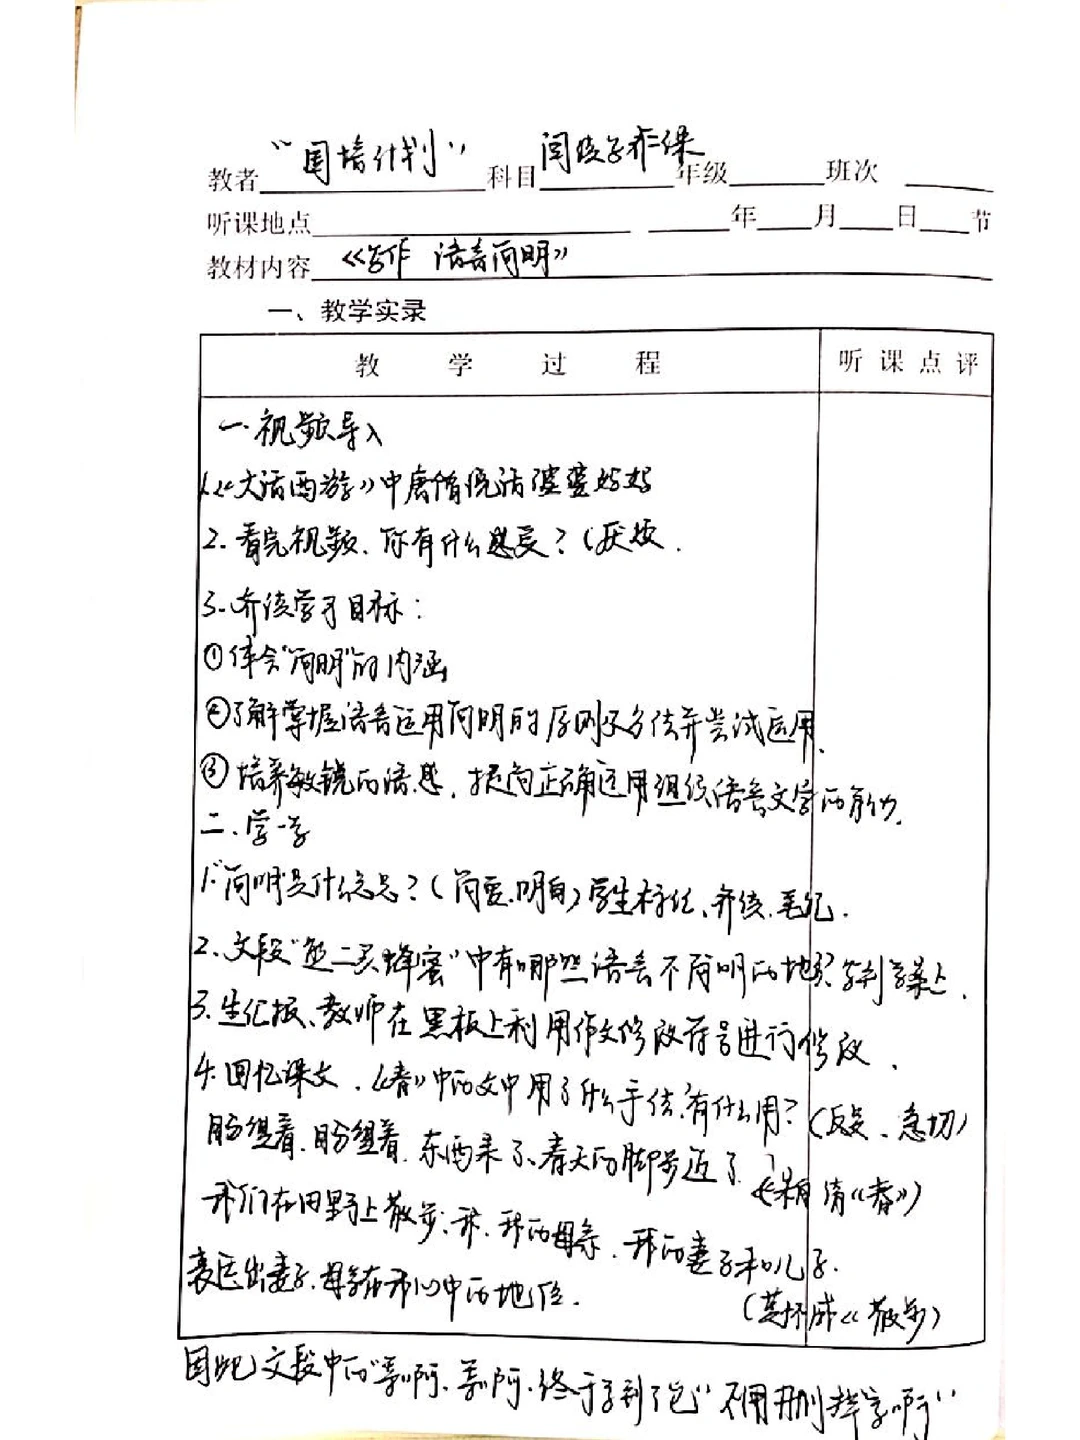 教者 "国培计划" 科目 闫晓子乔课 年级 班次
听课地点 年 月 日 节
教材内容 《写作 语言简明》
一、教学实录
教 学 过 程 听 课 点 评
一.视频导入
1.《大话西游》中唐僧说话婆婆妈妈
2.看完视频、你有什么感受?(厌烦.
3.齐读学习目标:
①体会"简明"的内涵
②了解掌握语言运用简明的原则及方法并尝试运用.
③培养敏锐的语感,提高正确运用组织语言文字的能力.
二.学一学
1.简明是什么意思?(简要.明白)学生标注、齐读.笔记.
2.文段"熊二买蜂蜜"中有哪些语言不简明的地方?写到学案上.
3.生汇报、教师在黑板上利用作文修改符号进行修改.
4.回忆课文.《春》中的文中用了什么手法.有什么用?(反复、急切)
盼望着.盼望着.东西来了、春天的脚步近了.
(朱自清《春》)
我们在田野上散步:我.我的母亲.我的妻子和儿子.
表达出妻子.母亲在我心中的地位.
(莫怀戚《散步》)
因此文段中的"等啊.等啊.终于等到了它"不用删掉"等啊"